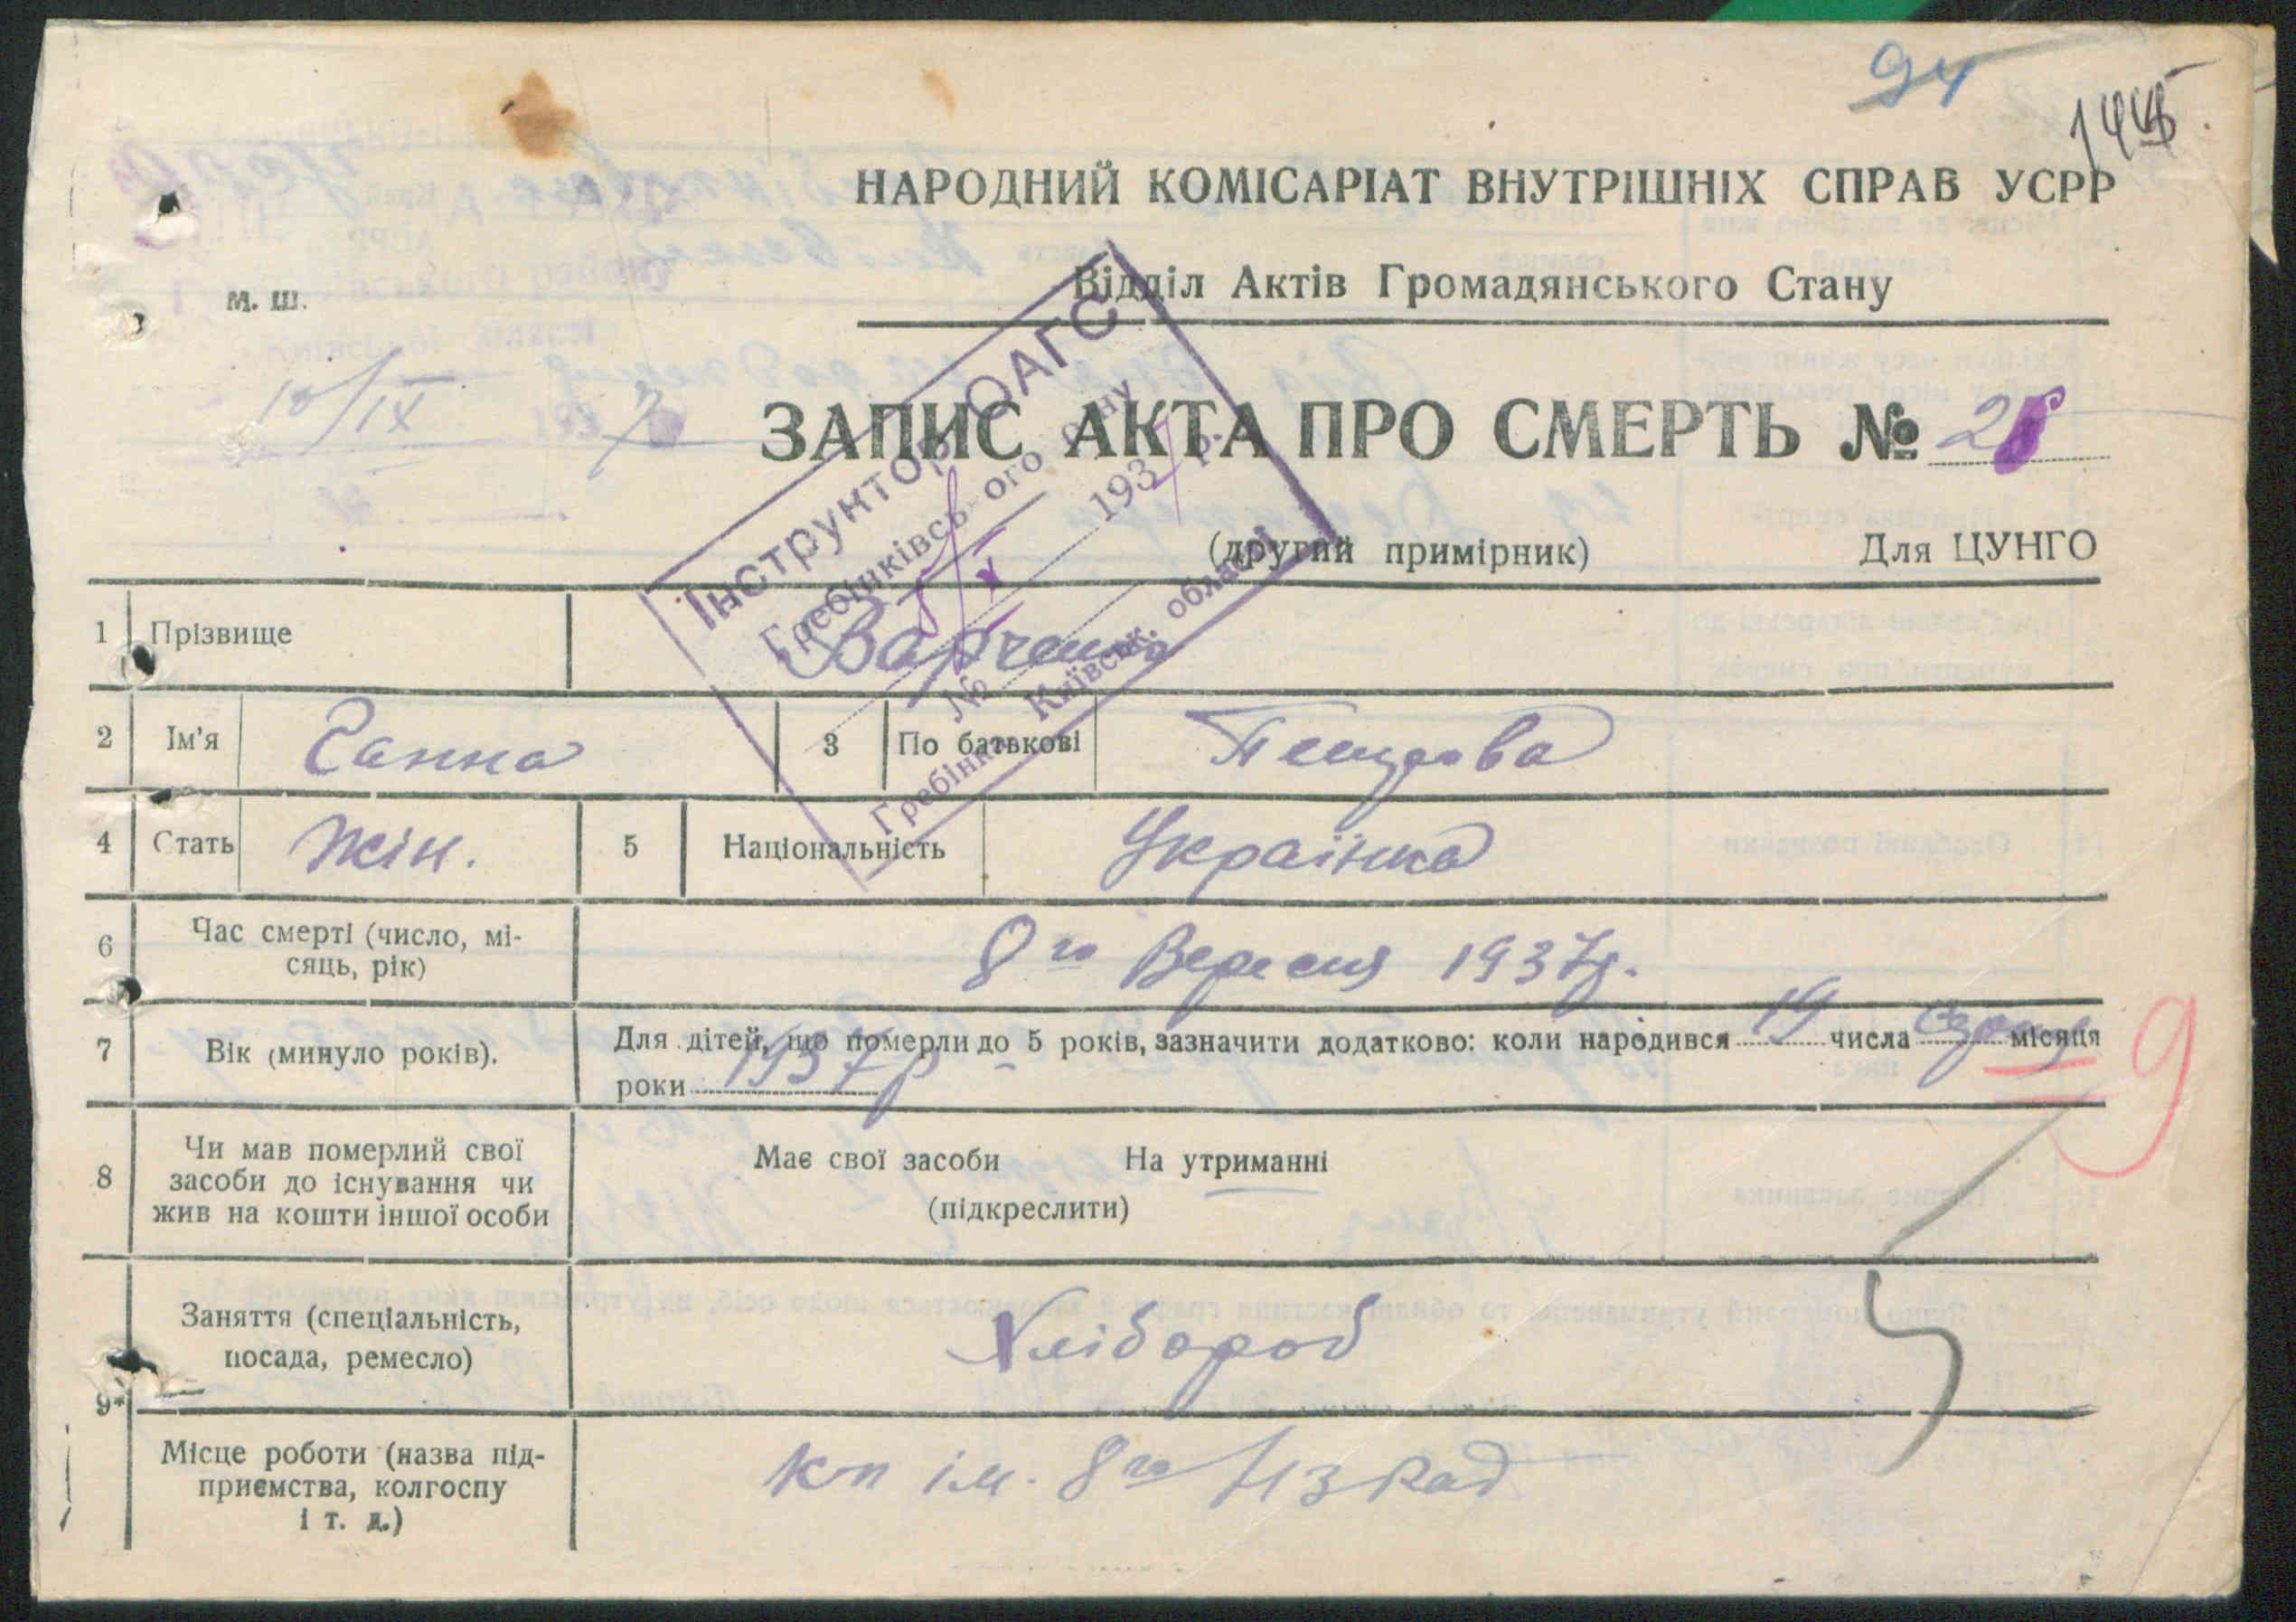 94
НАРОДНИЙ КОМІСАРІАТ ВНУТРІШНІХ СПРАВ УСРР
Відділ Актів Громадянського Стану
М. Ш.
10/IX 1937
ЗАПИС АКТА ПРО СМЕРТЬ № 28
(другий примірник) Для ЦУНГО
Інструктор ОАГС
Гребінківського
193 р.
№
Гребінки Київськ. області
1 Прізвище Варченко
2 Ім'я Ганна 3 По батькові
4 Стать Жін. 5 Національність Українка
6 Час смерті (число, мі-
сяць, рік) 8го Вересня 1937р.
7 Вік (минуло років). Для дітей, що померли до 5 років, зазначити додатково: коли народився 19 числа місяця
роки 1937р
9
8 Чи мав померлий свої
засоби до існування чи
жив на кошти іншої особи
Має свої засоби На утриманні
(підкреслити)
9* Заняття (спеціальність,
посада, ремесло) Хлібороб
Місце роботи (назва під-
приємства, колгоспу
і т. д.) ім. 8го Зʼїзд Рад